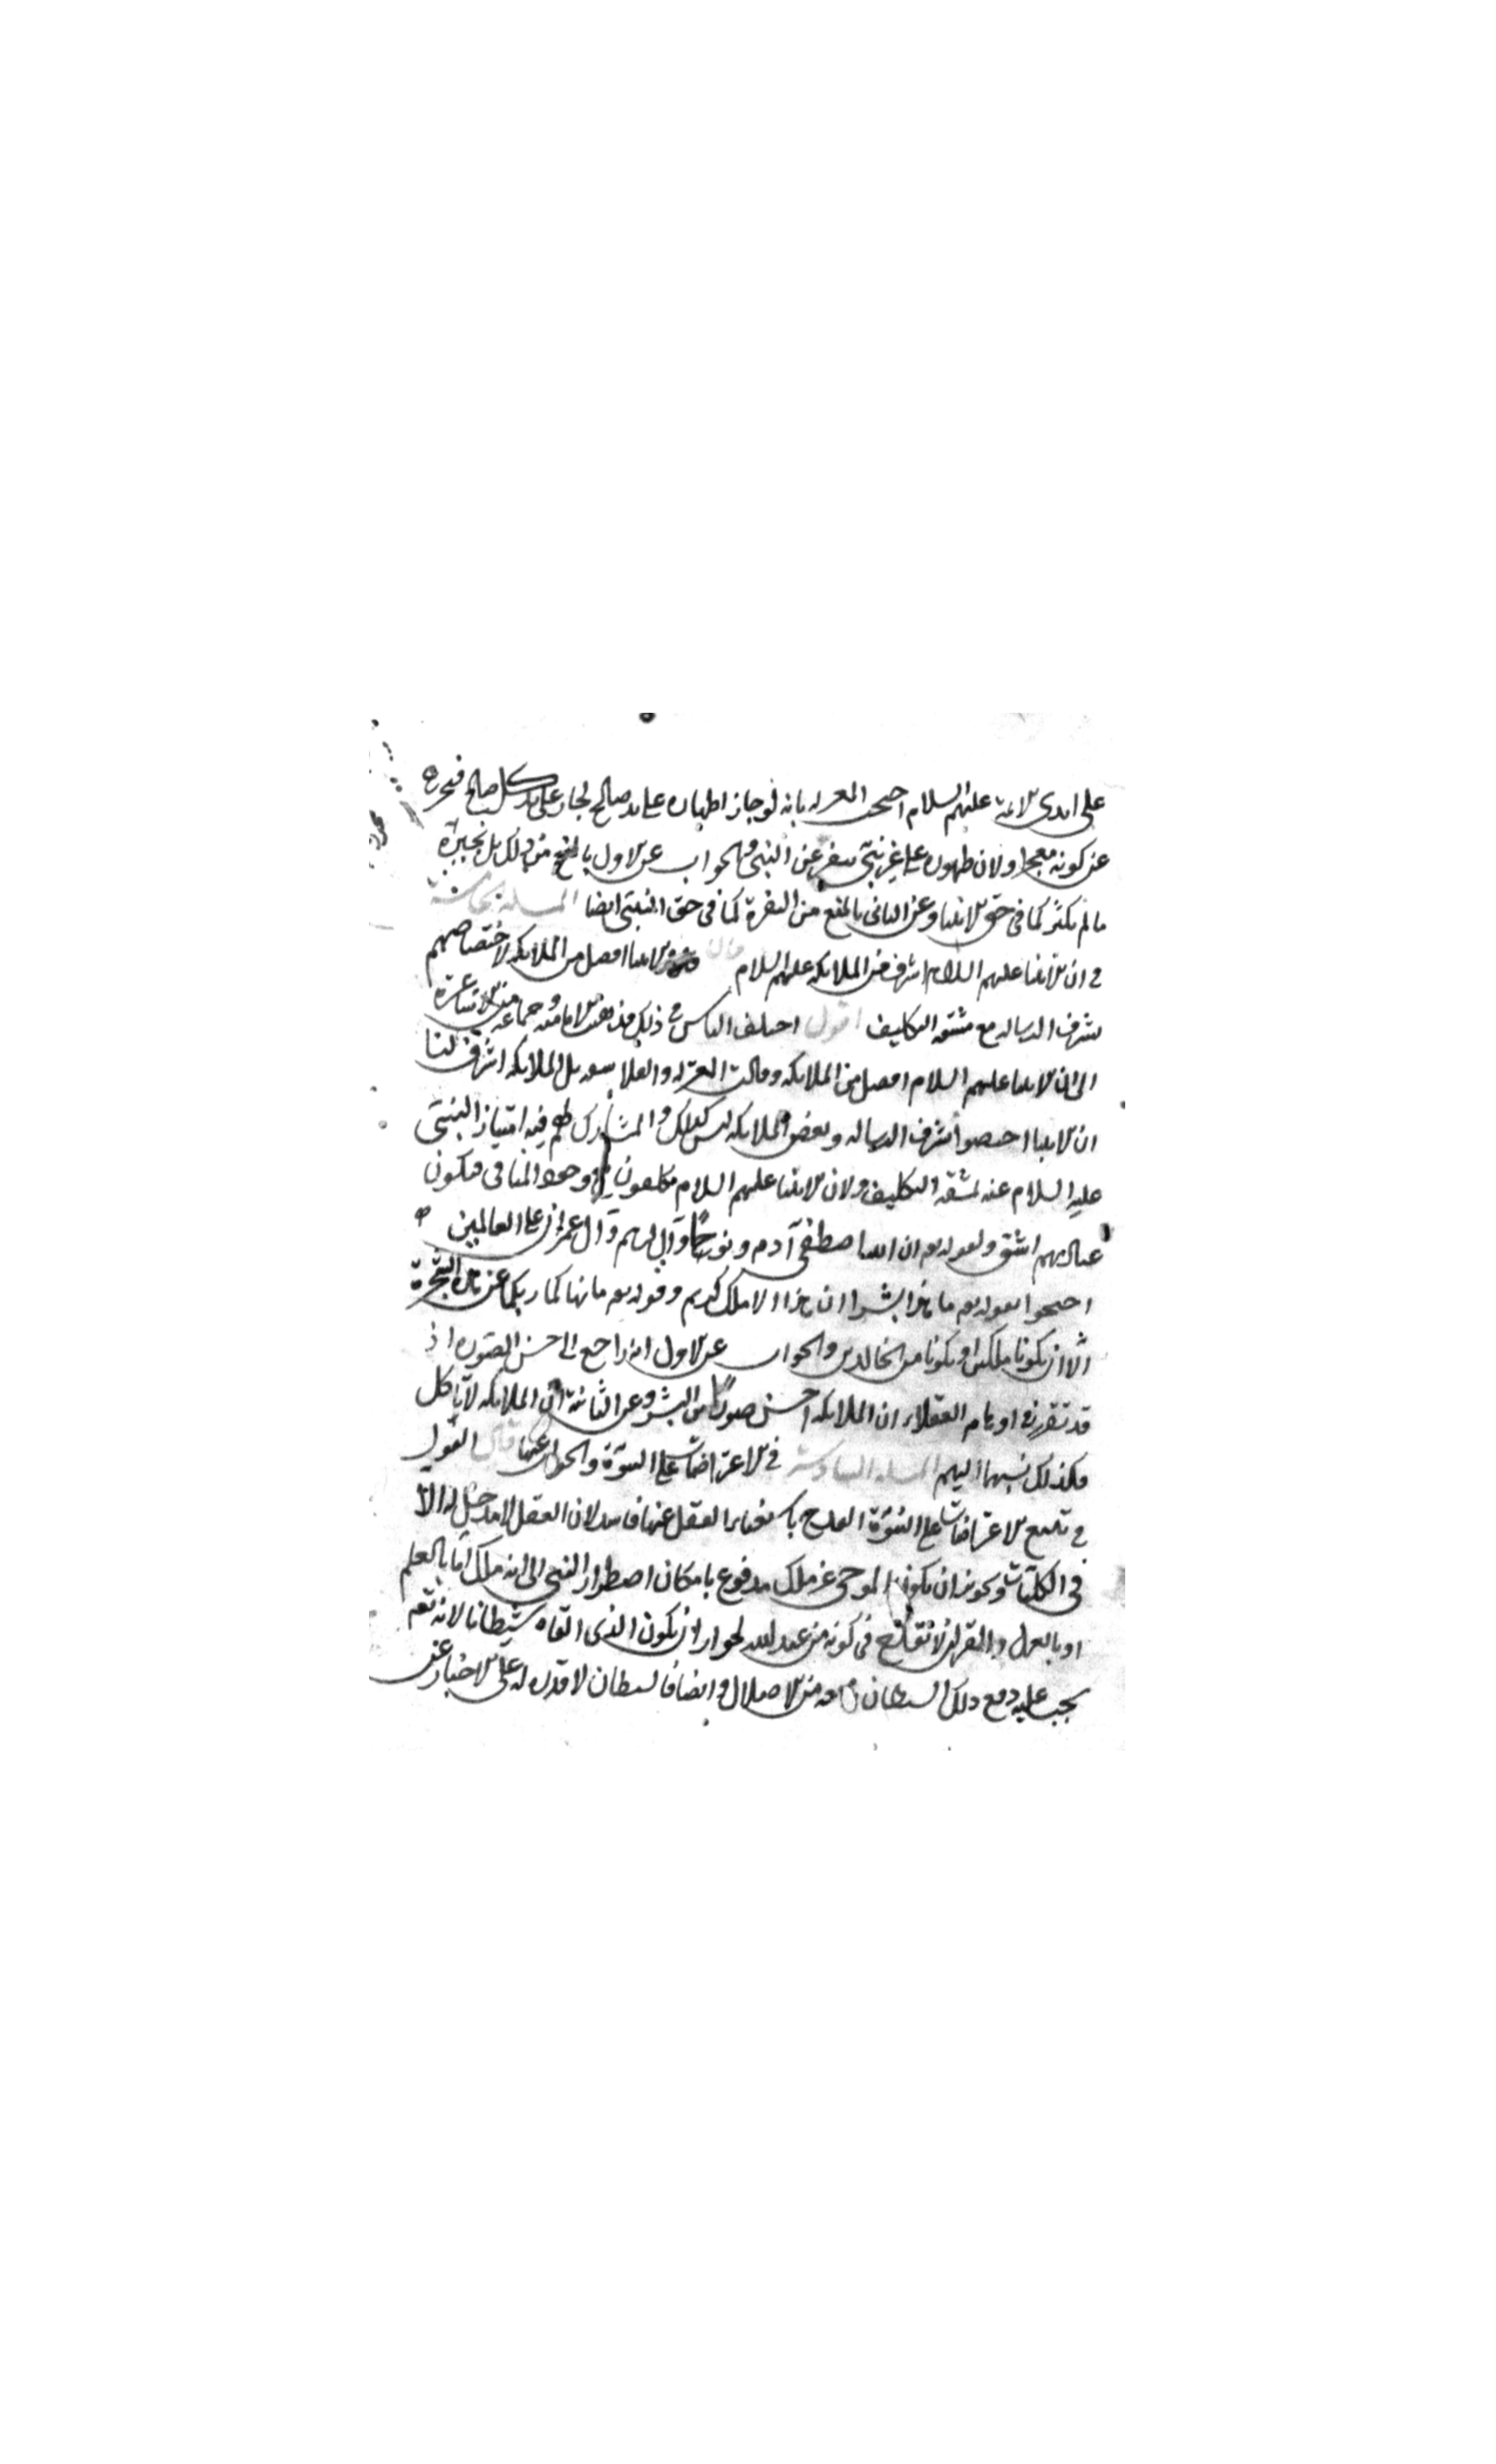 على ايدى الائمة عليهم السلام احتجت المعتزلة بانه لو جاز اظهاره على يد صالح لجاز على يد كل صالح فنخرجه
عن كونه معجزا ولان ظهوره على غير نبى ينفر عن النبى والجواب عن الاول بالمنع من ذلك بل نجيزه
ما لم يكثر كما فى حق الانبيا وعن الثانى بالمنع من النفرة كما فى حق النبى ايضا المسئلة الخامسة
فى ان الانبيا عليهم السلام اشرف من الملايكة عليهم السلام قال الانبيا افضل من الملايكة لاختصاصهم
بشرف الرسالة مع مشقة التكليف اقول اختلف الناس فى ذلك فذهبت الامامية وجماعة من الاشاعرة
الى ان الانبيا عليهم السلام افضل من الملايكة وقالت المعتزلة والفلاسفة بل الملايكة اشرف لنا
ان الانبيا اختصوا بشرف الرسالة وبعض الملايكة ليس كذلك والمشارك لهم فيه امتياز النبى
عليه السلام عنه بمشقة التكليف ولان الانبيا عليهم السلام مكلفون مع وجود المنافى فتكون
عبادتهم اشق ولقوله تع ان الله اصطفى آدم ونوحا وآل ابرهيم وآل عمران على العالمين
احتجوا بقوله تع ما هذا بشرا ان هذا الا ملك كريم وقوله تع ما نهاكما ربكما عن هذه الشجرة
الا ان تكونا ملكين او تكونا من الخالدين والجواب عن الاول انه راجع الى حسن الصورة اذ
قد تقرر فى اوهام العقلاء ان الملايكة احسن صورة من البشر وعن الثانية ان الملايكة لا تاكل
فكذلك نسبهما اليهم المسئلة السادسة فى الاعتراضات على النبوة والجواب عنها قال القول
فى تتبع الاعتراضات على النبوة القدح باستغناء العقل عنها فاسد لان العقل لا مدخل له الا
فى الكليات وتجويز ان يكون الموحى غير ملك مدفوع بامكان اضطرار النبى الى انه ملك اما بالعلم
او بالعمل والقران لا نقدح فى كونه من عند الله لجواز ان يكون الذى القاه شيطانا لانه تعم
يجب عليه دفع ذلك الشيطان ومنعه من الاضلال وايضا فالشيطان لا قدرة له على الاخبار عن